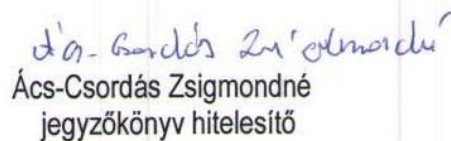 Ács-Csordás Zsigmondné
Ács-Csordás Zsigmondné
jegyzőkönyv hitelesítő